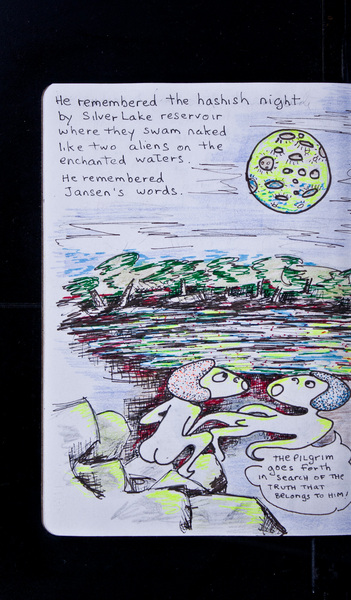 He remembered the hashish night
by Silver Lake reservoir
where they swam naked
like two aliens on the
enchanted waters.
He remembered
Jansen's words.
THE PILGRIM
goes forth
in search of the
TRUTH THAT
BELONGS TO HIM!